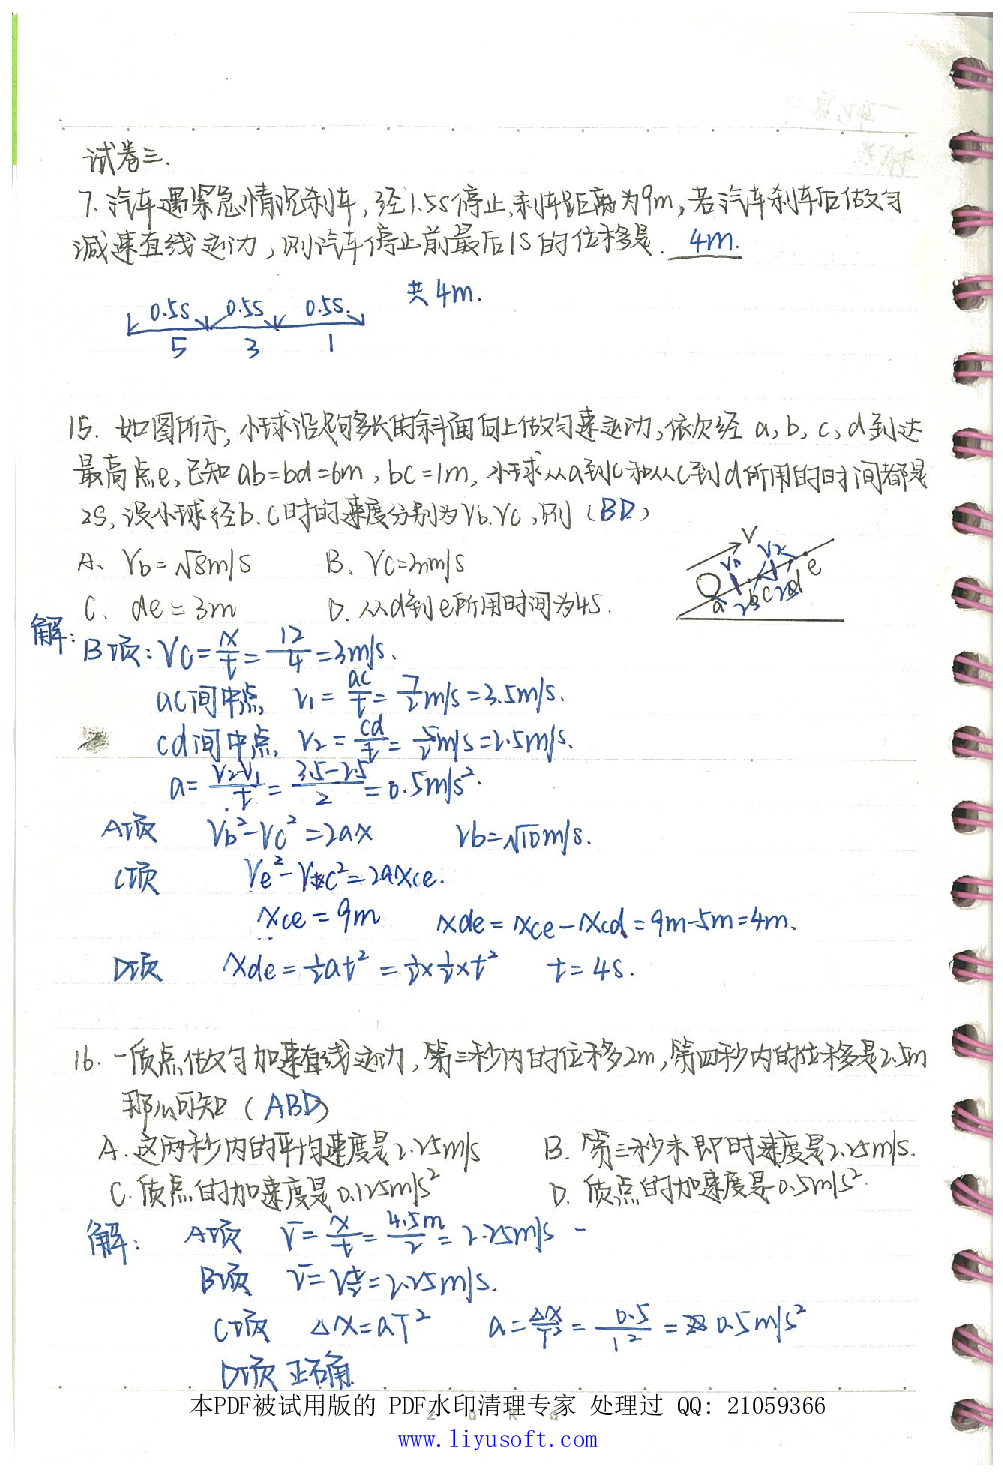 试卷三.
7. 汽车遇紧急情况刹车,经1.5s停止,刹车距离为9m,若汽车刹车后做匀
减速直线运动,则汽车停止前最后1s的位移是. 4m.
0.5s 0.5s 0.5s. 共4m.
5 3 1
15. 如图所示,小球沿足够长的斜面向上做匀速运动,依次经 a,b,c,d到达
最高点e,已知ab=bd=6m,bc=1m,小球从a到c和从c到d所用的时间都是
2s,设小球经b、c时的速度分别为Vb.Vc,则(BD)
A、Vb=√8m/s B、Vc=3m/s
C、de=3m D.从d到e所用时间为4s.
V V1 V2 a b c d e 2s 2s
解:B项:Vc=x/t=12/4=3m/s.
ac间中点 V1=ac/t=7/2m/s=3.5m/s.
cd间中点 V2=cd/t=5/2m/s=2.5m/s.
a=V2-V1/t=3.5-2.5/2=0.5m/s².
A项 Vb²-Vc²=2ax Vb=√10m/s.
C项 Ve²-Vc²=2axce.
xce=9m xde=xce-xcd=9m-5m=4m.
D项 xde=½at²=½×½×t² t=4s.
16. 一质点做匀加速直线运动,第三秒内的位移2m,第四秒内的位移是2.5m
那么可知(ABD)
A.这两秒内的平均速度是2.25m/s B.第三秒末即时速度是2.25m/s.
C.质点的加速度是0.125m/s² D.质点的加速度是0.5m/s².
解: A项 V̄=x/t=4.5m/2=2.25m/s
B项 V̄=Vt/2=2.25m/s.
C项 △x=aT² a=△x/T²=0.5/1²=0.5m/s²
D项正确
本PDF被试用版的 PDF水印清理专家 处理过 QQ: 21059366
www.liyusoft.com